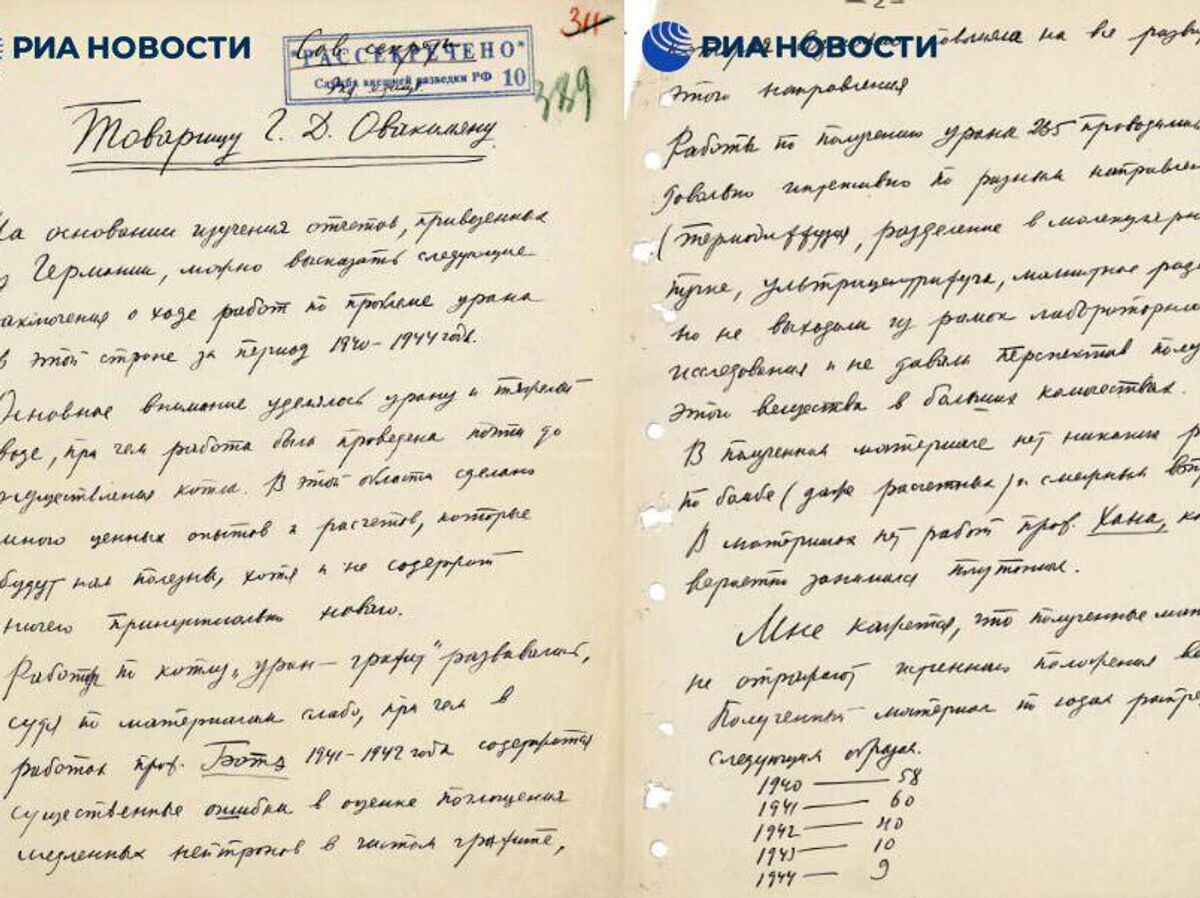 РИА НОВОСТИ
Сов. секретно
"РАССЕКРЕЧЕНО"
Служба внешней разведки РФ 10
311
389
Товарищу Г. Д. Овакимяну
На основании изучения отчетов, привезенных
из Германии, можно высказать следующие
заключения о ходе работ по проблеме урана
в этой стране за период 1940-1944 годы.
Основное внимание уделялось урану и тяжелой
воде, при чем работа была проведена почти до
осуществления котла. В этой области сделано
много ценных опытов и расчетов, которые
будут нам полезны, хотя и не содержат
ничего принципиально нового.
Работы по котлу "уран - графит" развивались,
судя по материалам слабо, при чем в
работах проф.Ботэ 1941-1942 года содержатся
существенные ошибки в оценке поглощения
медленных нейтронов в чистом графите,
- 2 -
РИА НОВОСТИ
повлияла на все разви
этого направления
Работы по получению урана 235 проводились
довольно интенсивно по разным направле
(термодиффузия, разделение в молекулярн
пучке, ультрацентрифуга, магнитное разд
но не выходили из рамок лабораторны
исследования и не давали перспектив полу
этого вещества в больших количествах.
В полученном материале нет никаких р
по бомбе (даже расчетных) и смежным воп
В материалах нет работ проф. Хана, ко
вероятно занимался плутонием.
Мне кажется, что полученные мат
не отражают истинного положения
Полученный материал по годам распре
следующим образом.
1940 — 58
1941 — 60
1942 — 40
1943 — 10
1944 — 9